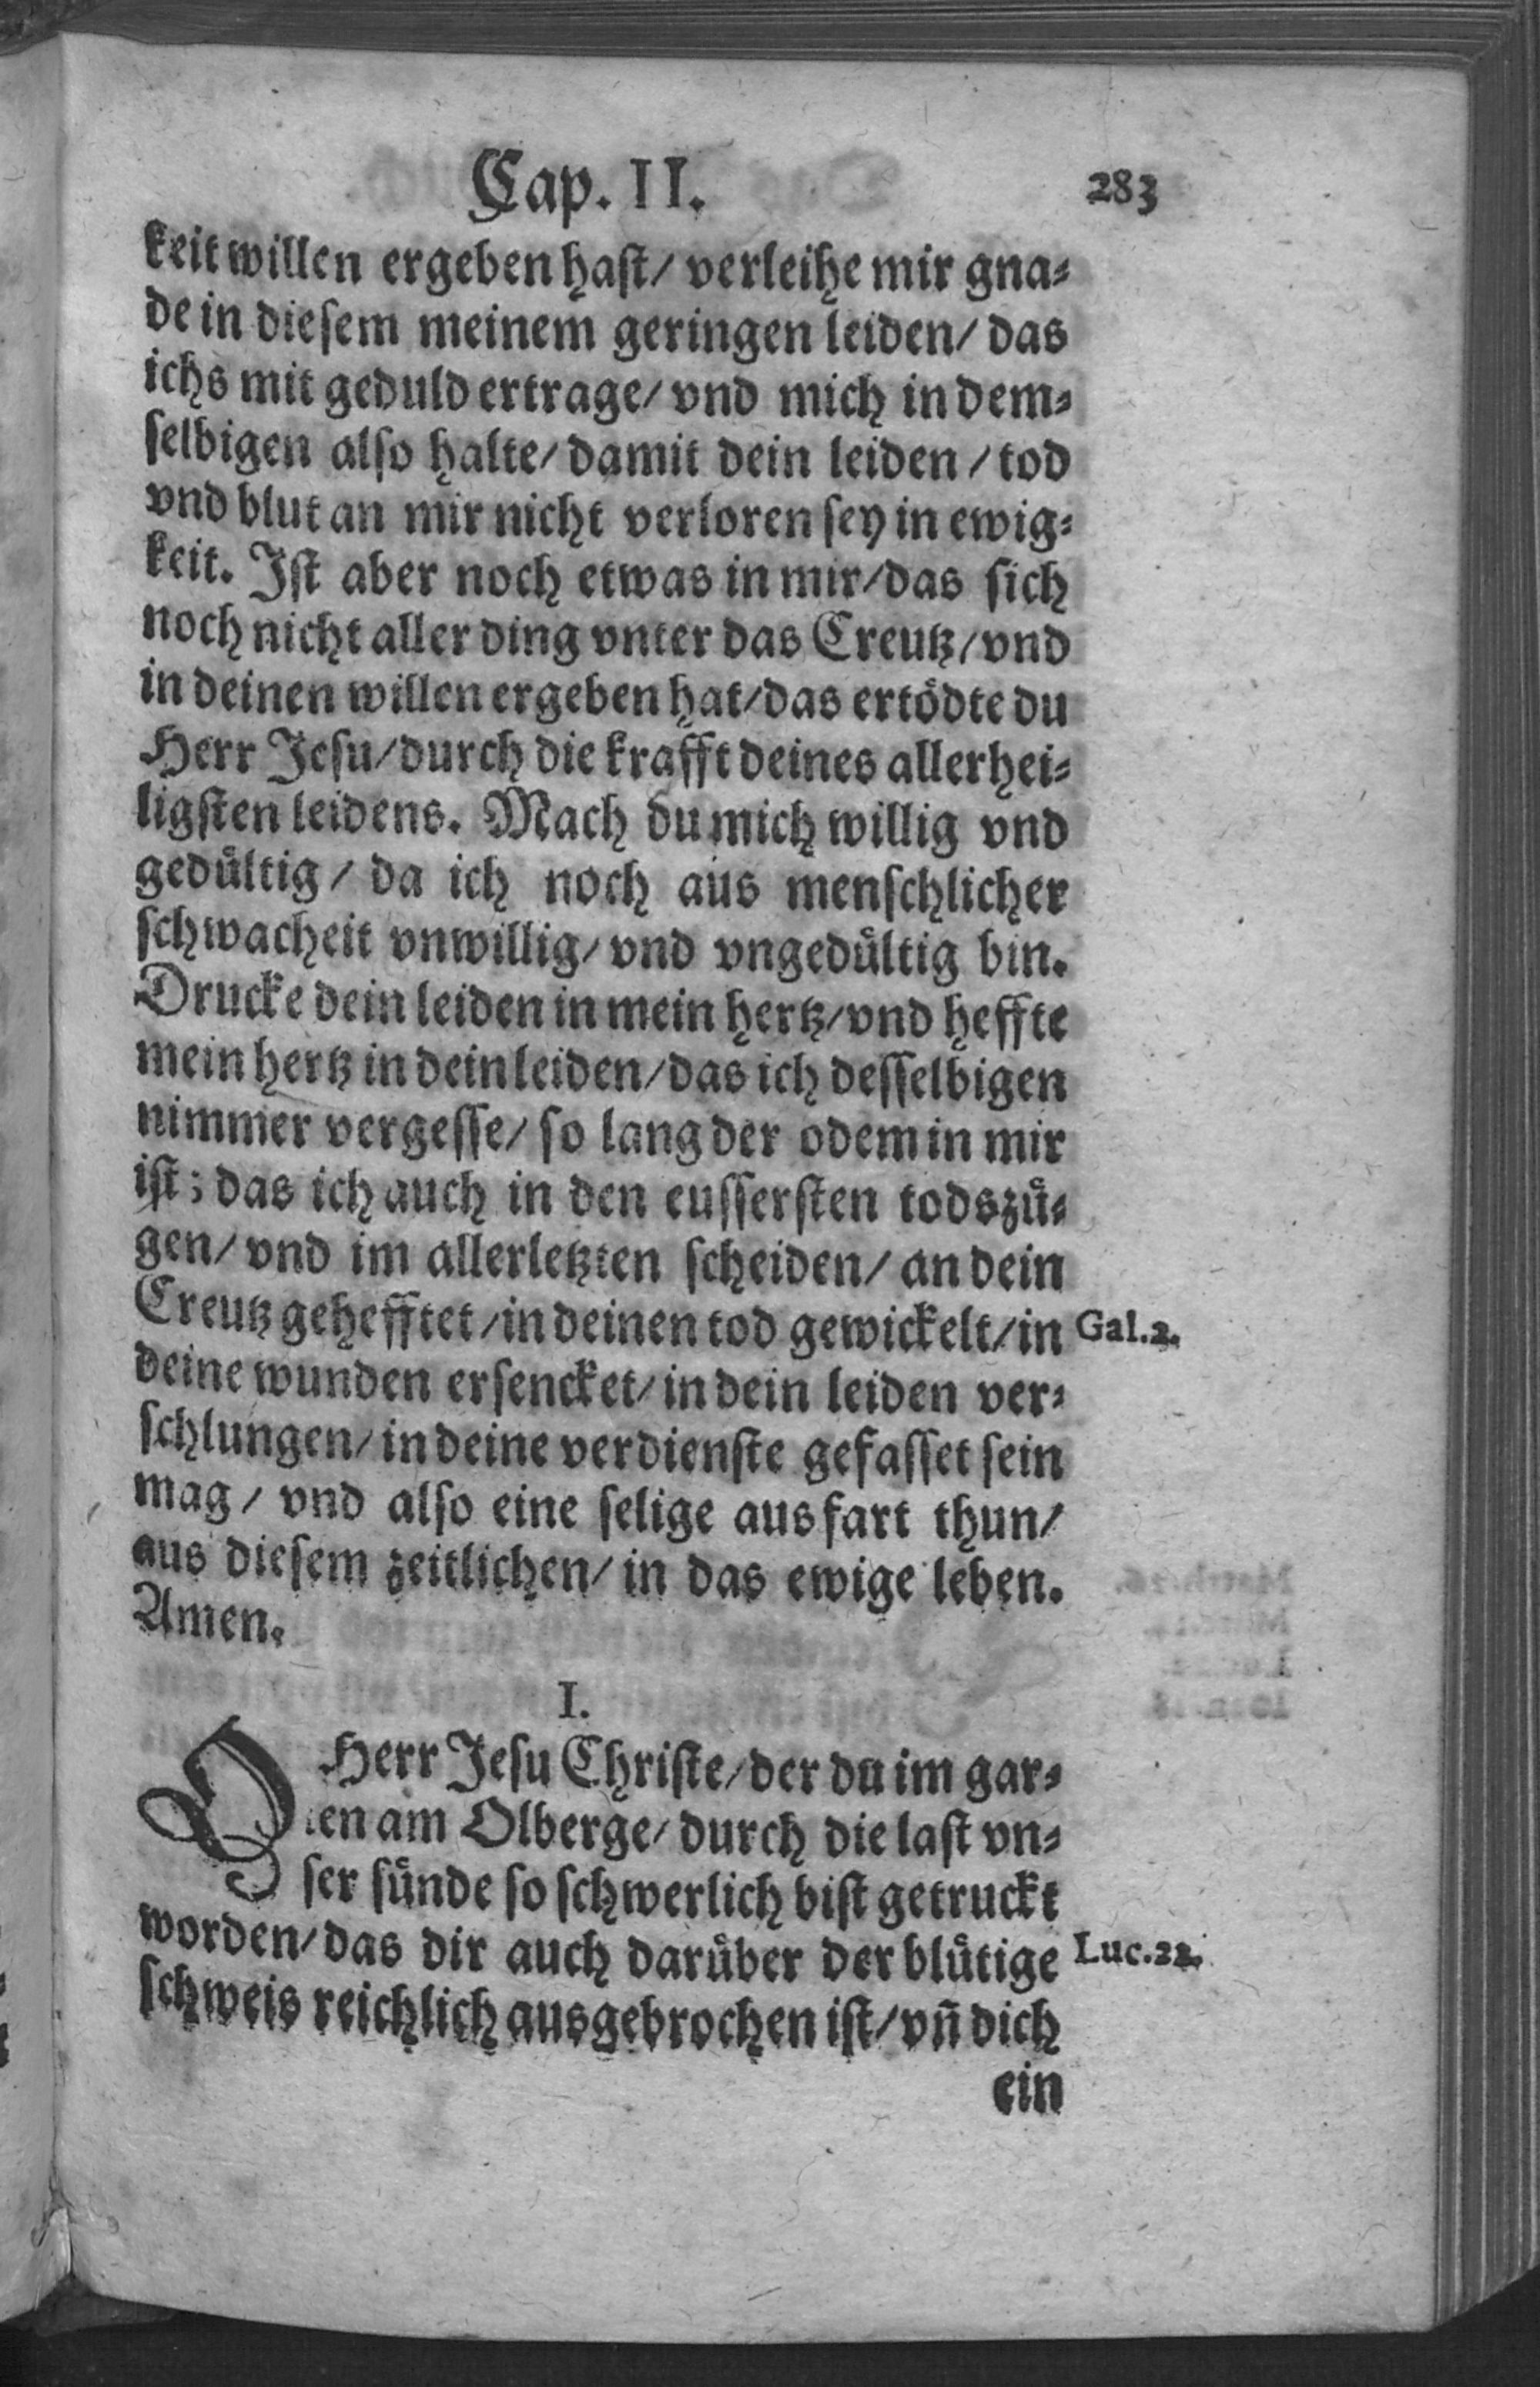 Cap. II. 283
keit willen ergeben hast/ verleihe mir gna-
de in diesem meinem geringen leiden/ das
ichs mit geduld ertrage/ vnd mich in dem-
selbigen also halte/ damit dein leiden / tod
vnd blut an mir nicht verloren sey in ewig-
keit. Ist aber noch etwas in mir/ das sich
noch nicht aller ding vnter das Creutz/ vnd
in deinen willen ergeben hat/ das ertödte du
Herr Jesu/ durch die krafft deines allerhei-
ligsten leidens. Mach du mich willig vnd
gedültig / da ich noch aus menschlicher
schwacheit vnwillig/ vnd vngedültig bin.
Drucke dein leiden in mein hertz/ vnd heffte
mein hertz in dein leiden/ das ich desselbigen
nimmer vergesse/ so lang der odem in mir
ist; das ich auch in den eussersten todszü-
gen/ vnd im allerletzten scheiden/ an dein
Creutz gehefftet/ in deinen tod gewickelt/ in Gal.2.
deine wunden ersencket/ in dein leiden ver-
schlungen/ in deine verdienste gefasset sein
mag / vnd also eine selige ausfart thun/
aus diesem zeitlichen/ in das ewige leben.
Amen.
I.
O Herr Jesu Christe/ der du im gar-
ten am Olberge/ durch die last vn-
ser sünde so schwerlich bist getruckt
worden/ das dir auch darüber der blütige Luc.22.
schweis reichlich ausgebrochen ist/ vñ dich
ein